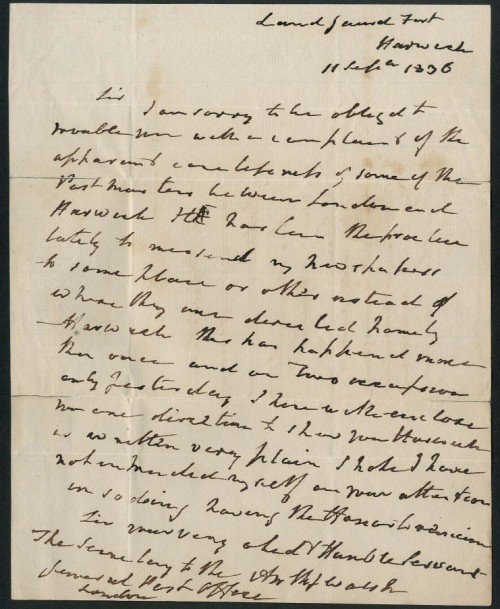 Landguard Fort
Harwich
11 Sepr 1836
Sir I am sorry to be obliged to
trouble you with a complaint of the
apparent carelessness of some of the
Post Masters between London and
Harwich It has been the practice
lately to missend my Newspapers
to some place or other instead of
where they are directed namely
Harwich this has happened more
than once and on two occasions
only yesterday I herewith enclose
you one direction to shew you Harwich
is written very plain I hope I have
not intruded myself on your attention
in so doing having the Honor to remain
Sir your very obedt Humble Servant
The Secretary to the
General Post Office
London